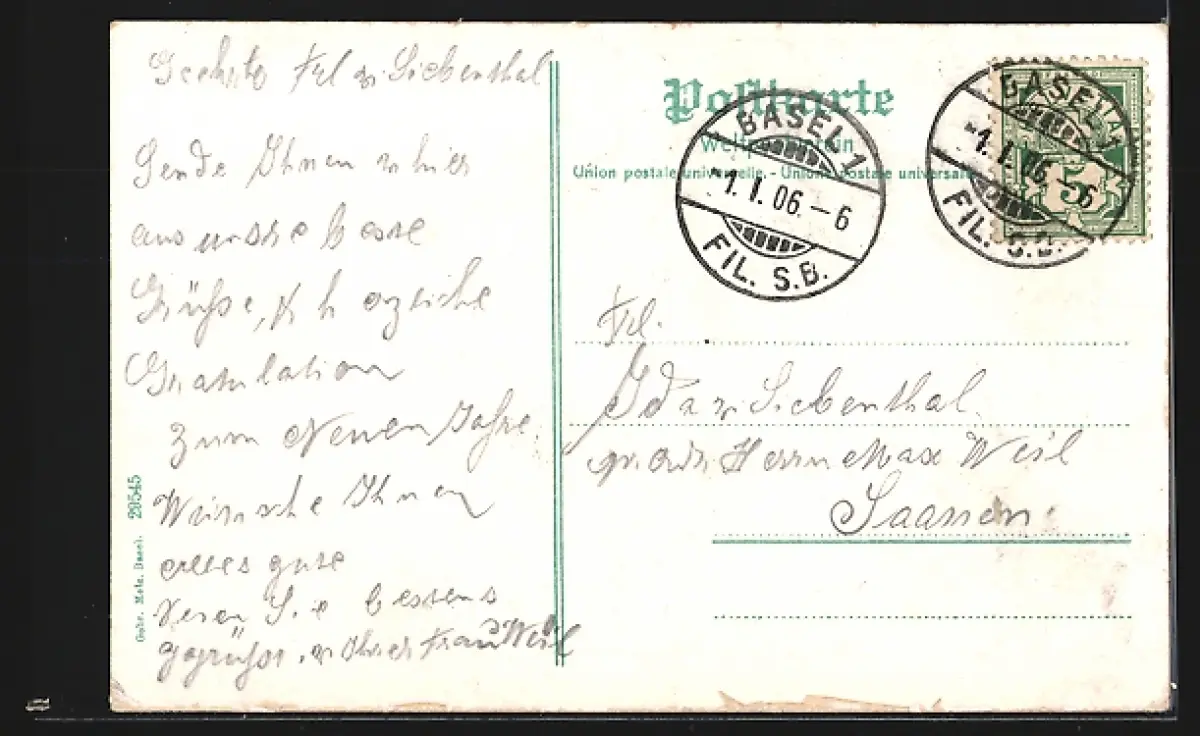 Geehrte Frl v. Siebenthal
Sende Ihnen v hier
aus unsre beste
Grüße, & herzliche
Gratulation
zum Neuen Jahre.
Wünsche Ihnen
alles gute
Seien Sie bestens
gegrüßt, v Ihrer Frau Weil
Gebr. Metz, Basel. 20545
Postkarte
Weltpostverein
Union postale universelle. - Unione postale universale
BASEL 1
1. I. 06. – 6
FIL. S.B.
BASEL 1
1. I. 06. – 6
FIL. S.B.
5
Frl.
Ida v. Siebenthal
Herrn Max Weil
Saanen.